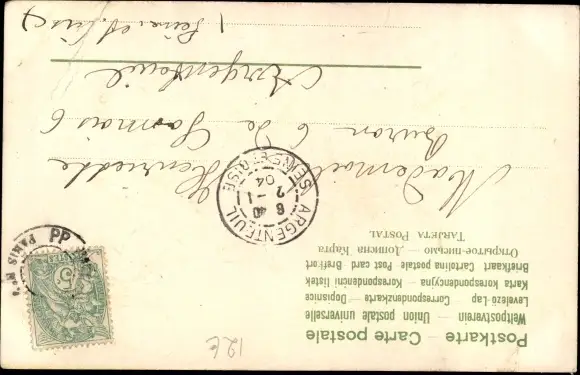 Postkarte — Carte postale
Weltpostverein — Union postale universelle
Levelező-Lap — Correspondenzkarte — Dopisnice
Karta korespondencyjna — Korespondenční lístek
Briefkaart — Cartolina postale — Post card — Breffkort
Открытое письмо — Дописна Карта
Tarjeta Postal
Mademoiselle Henriette
6
Argenteuil
(Seine et Oise)
ARGENTEUIL
6 40
2 - 1
04
SEINE-ET-OISE
PP
PARIS
5
12E